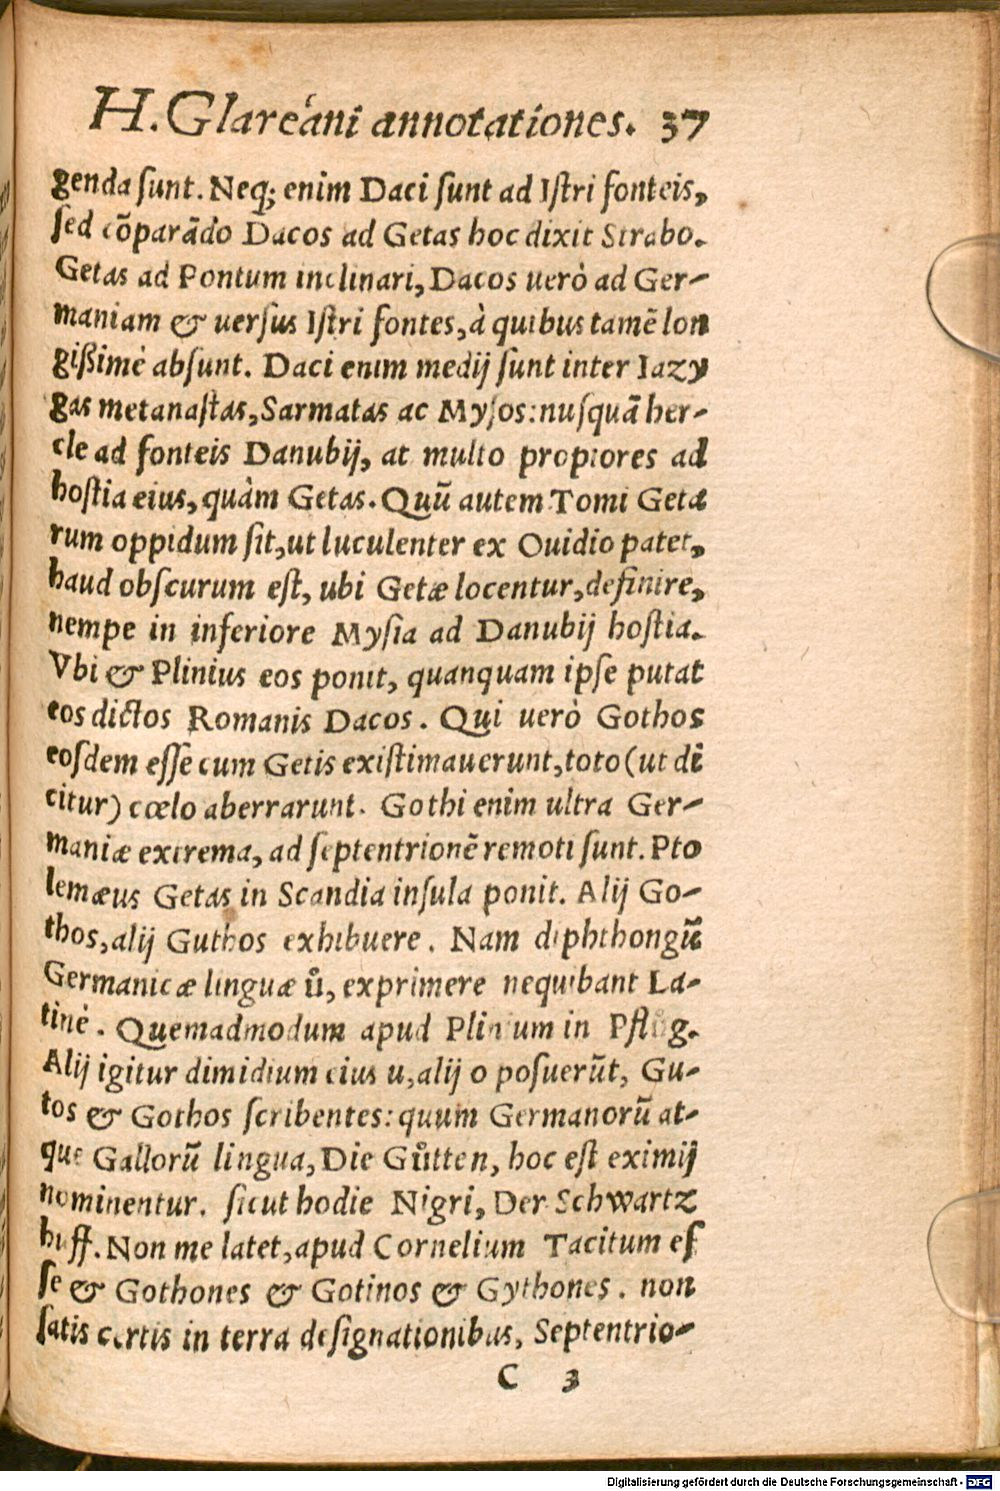 H. Glareani annotationes. 37
genda sunt. Neq; enim Daci sunt ad Istri fonteis,
sed cõparãdo Dacos ad Getas hoc dixit Strabo.
Getas ad Pontum inclinari, Dacos uerò ad Ger-
maniam & uersus Istri fontes, à quibus tamẽ lon
gißimè absunt. Daci enim medij sunt inter Iazy
gas metanastas, Sarmatas ac Mysos: nusquã her-
cle ad fonteis Danubij, at multo propiores ad
hostia eius, quàm Getas. Quũ autem Tomi Getæ
rum oppidum sit, ut luculenter ex Ouidio patet,
haud obscurum est, ubi Getæ locentur, definire,
nempe in inferiore Mysia ad Danubij hostia.
Vbi & Plinius eos ponit, quanquam ipse putat
eos dictos Romanis Dacos. Qui uerò Gothos
eosdem esse cum Getis existimauerunt, toto (ut di
citur) cœlo aberrarunt. Gothi enim ultra Ger-
maniæ extrema, ad septentrionẽ remoti sunt. Pto
lemæus Getas in Scandia insula ponit. Alij Go-
thos, alij Guthos exhibuere. Nam diphthongũ
Germanicæ linguæ ů, exprimere nequibant La-
tinè. Quemadmodum apud Plinium in Pflůg.
Alij igitur dimidium eius u, alij o posuerũt, Gu-
tos & Gothos scribentes: quum Germanorũ at-
que Gallorũ lingua, Die Gůtten, hoc est eximij
nominentur. sicut hodie Nigri, Der Schwartz
huff. Non me latet, apud Cornelium Tacitum es
se & Gothones & Gotinos & Gythones. non
satis certis in terra designationibus, Septentrio-
C 3
Digitalisierung gefördert durch die Deutsche Forschungsgemeinschaft - DFG